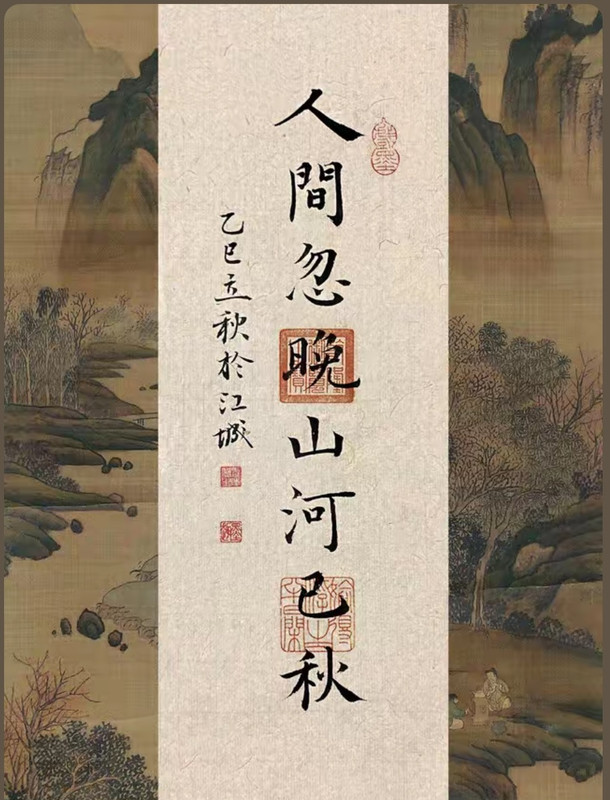 人間忽晚山河已秋
乙巳立秋於江城